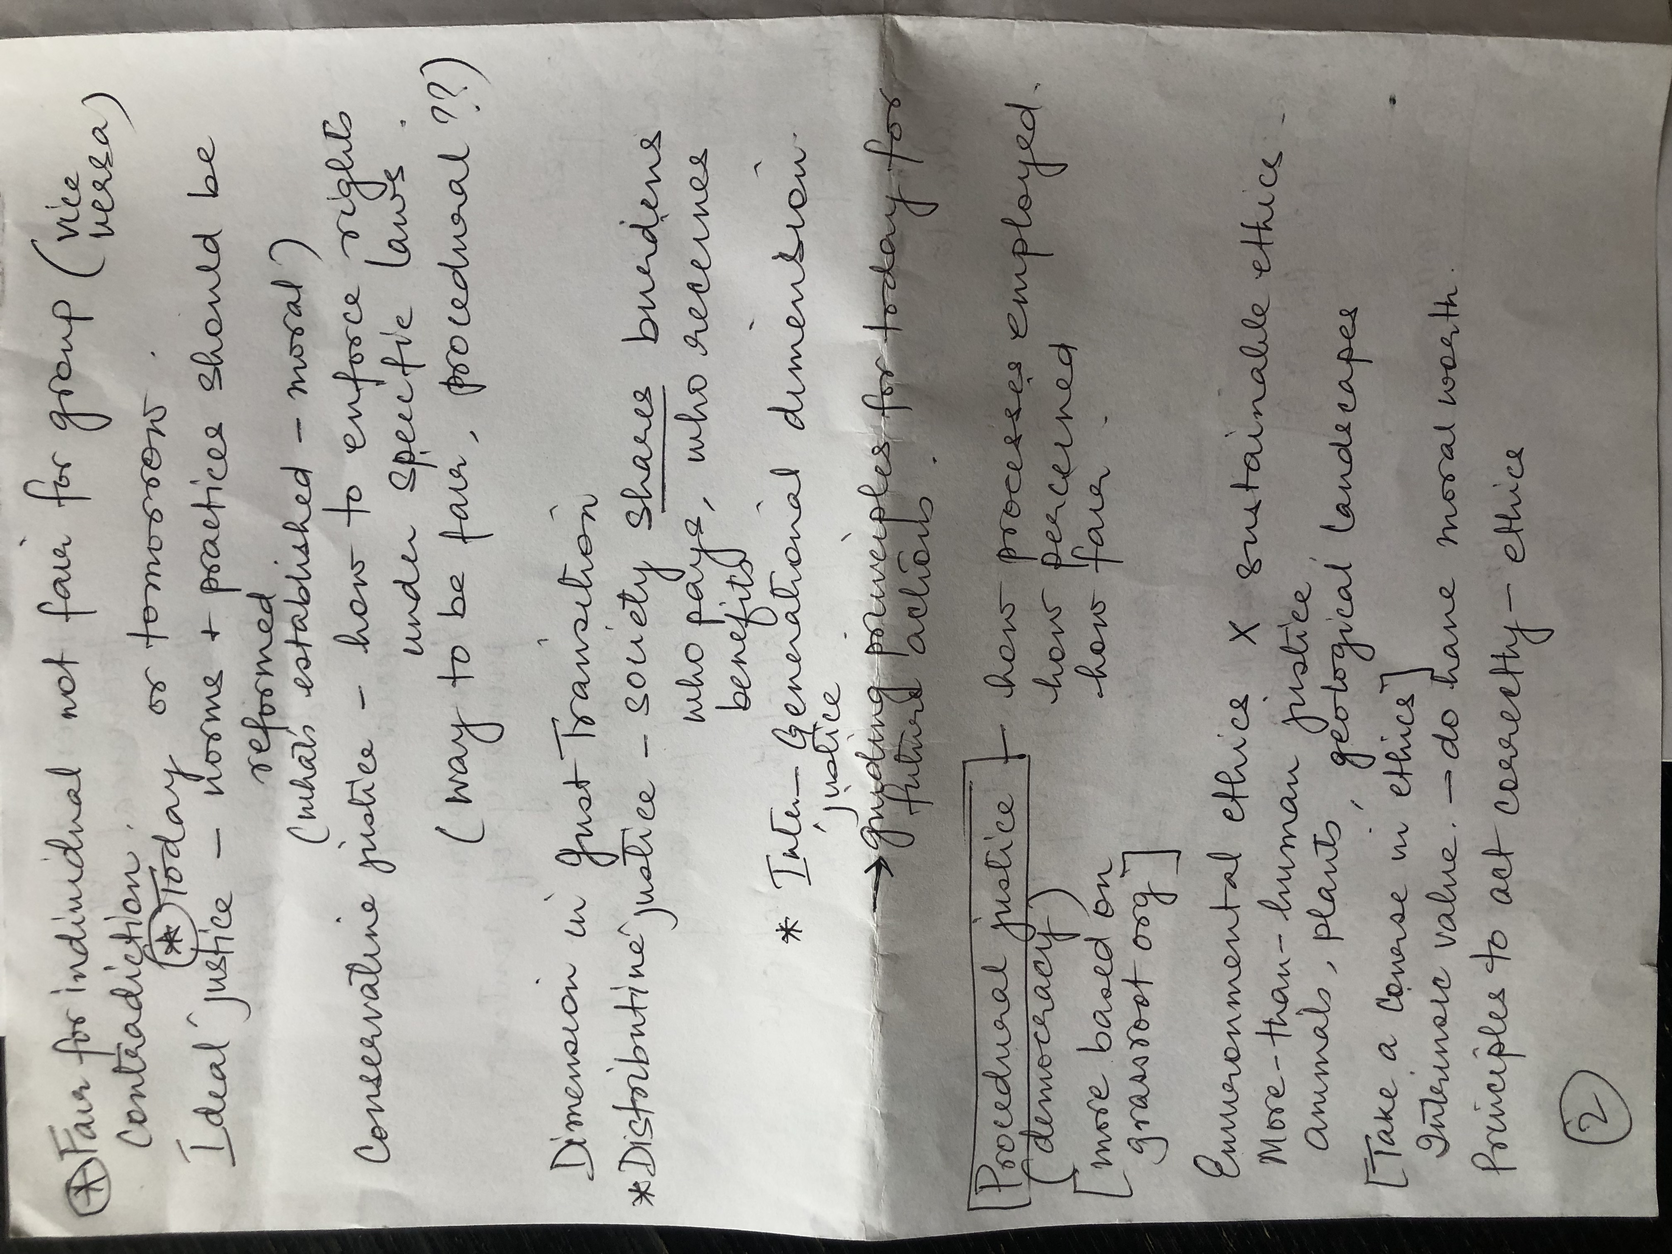 * Fair for individual not fair for group (vice versa)
contradiction.
* Today or tomorrow.
Ideal justice – norms + practices should be
reformed
(whats established – moral)
Conservative justice – how to enforce rights
under specific laws.
(way to be fair, procedural ??)
Dimension in Just Transition
* Distributive justice – society shares burdens
who pays, who receives
benefits
* Inter-Generational dimension
justice
→ guiding principles for today for
future actions.
Procedural justice – how processes employed.
(democracy) how perceived
[more based on how fair.
grassroot org]
Environmental ethics x sustainable ethics.
More-than-human justice
animals, plants, geological landscapes
[Take a course in ethics]
Intrinsic value. – do have moral worth.
Principles to act correctly – ethics
2